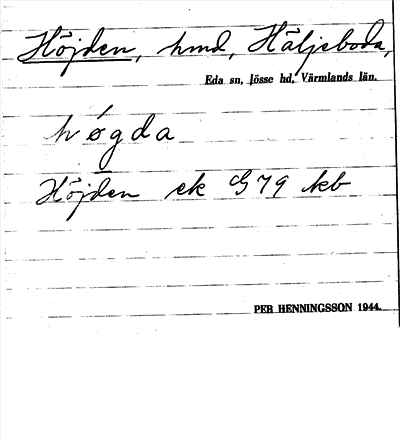 Höjden, hmd, Häljeboda,
Eda sn, Jösse hd, Värmlands län.
hǿgda
Höjden ek G79 kb
PER HENNINGSSON 1944.